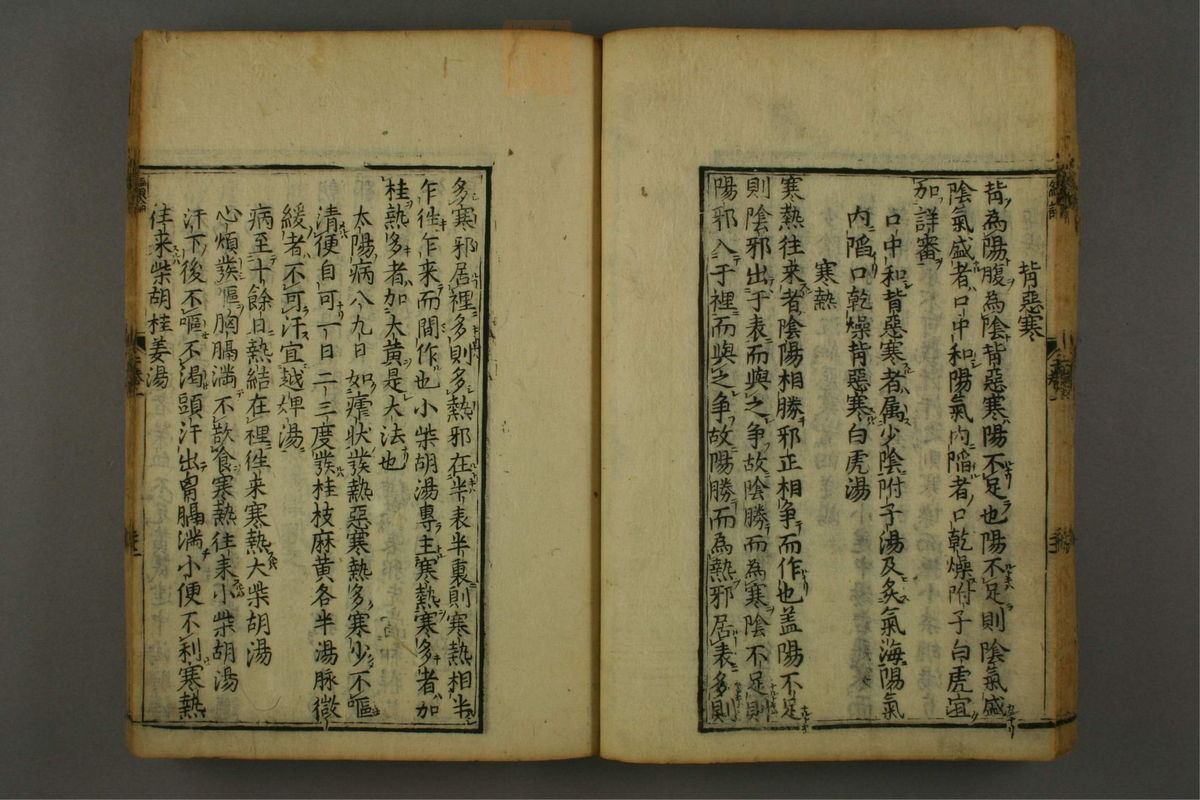 背惡寒
背為陽腹為陰背惡寒陽不足也陽不足則陰氣盛
陰氣盛者口中和陽氣内陷者口乾燥附子白虎宜
加詳審
口中和背惡寒者属少陰附子湯及炙氣海陽氣
内陷口乾燥背惡寒白虎湯
寒熱
寒熱往来者陰陽相勝邪正相争而作也盖陽不足
則陰邪出于表而與之争故陰勝而為寒陰不足則
陽邪入于裡而與之争故陽勝而為熱邪居表多則
多寒邪居裡多則多熱邪在半表半裏則寒熱相半
乍徃乍来而間作也小柴胡湯專主寒熱寒多者加
桂熱多者加大黄是大法也
太陽病八九日如瘧状發熱惡寒熱多寒少不嘔
清便自可一日二三度發桂枝麻黄各半湯脉微
緩者不可汗宜越婢湯
病至十餘日熱結在裡徃来寒熱大柴胡湯
心煩發嘔胸膈満不㱃食寒熱往来小柴胡湯
汗下後不嘔不渇頭汗出胷膈満小便不利寒熱
往来柴胡桂姜湯